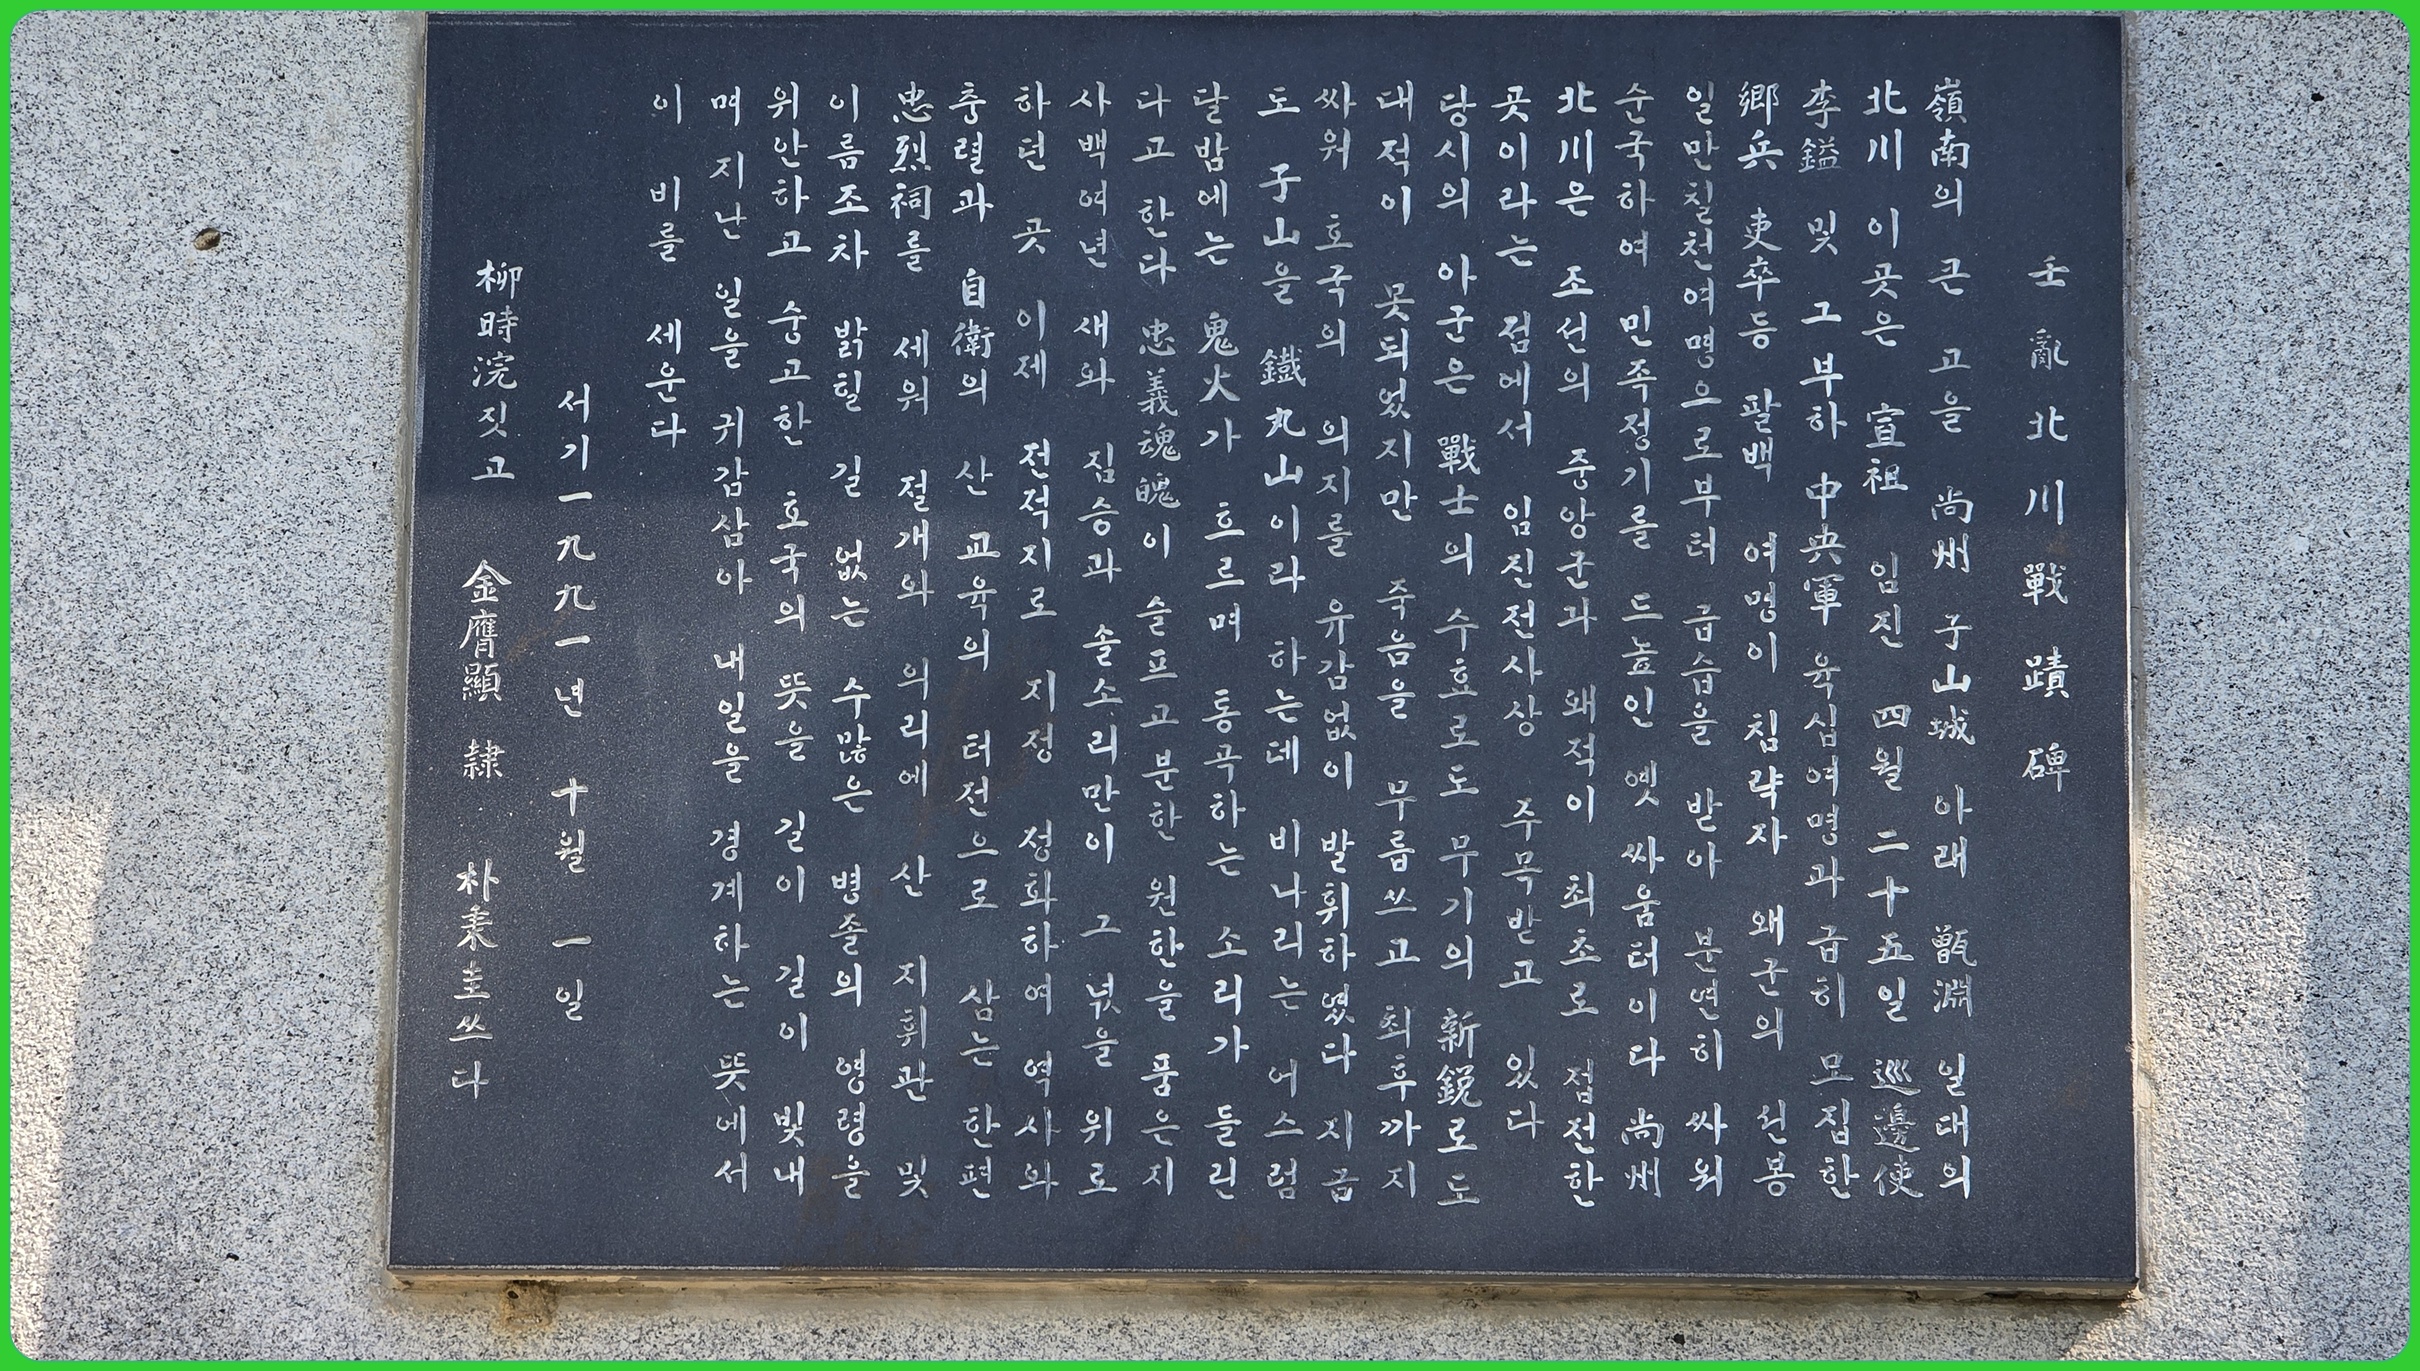 壬亂北川戰蹟碑
嶺南의 큰 고을 尚州 子山城 아래 甑淵 일대의
北川 이곳은 宣祖 임진 四월 二十五일 巡邊使
李鎰 및 그 부하 中央軍 육십여명과 급히 모집한
鄕兵 吏卒등 팔백 여명이 침략자 왜군의 선봉
일만칠천여명으로부터 급습을 받아 분연히 싸워
순국하여 민족정기를 드높인 옛 싸움터이다 尚州
北川은 조선의 중앙군과 왜적이 최초로 접전한
곳이라는 점에서 임진전사상 주목받고 있다
당시의 아군은 戰士의 수효로도 무기의 新銳로도
대적이 못되었지만 죽음을 무릅쓰고 최후까지
싸워 호국의 의지를 유감없이 발휘하였다 지금
도 子山을 鐵丸山이라 하는데 비나리는 어스럼
달밤에는 鬼火가 흐르며 통곡하는 소리가 들린
다고 한다 忠義魂魄이 슬프고 분한 원한을 품은지
사백여년 새와 짐승과 솔소리만이 그 넋을 위로
하던 곳 이제 전적지로 지정 성화하여 역사와
충렬과 自衛의 산 교육의 터전으로 삼는 한편
忠烈祠를 세워 절개와 의리에 산 지휘관 및
이름조차 밝힐 길 없는 수많은 병졸의 영령을
위안하고 숭고한 호국의 뜻을 길이 길이 빛내
며 지난 일을 귀감삼아 내일을 경계하는 뜻에서
이 비를 세운다
서기 一九九一년 十월 一일
柳時浣 짓고 金膺顯 隷 朴秉圭 쓰다